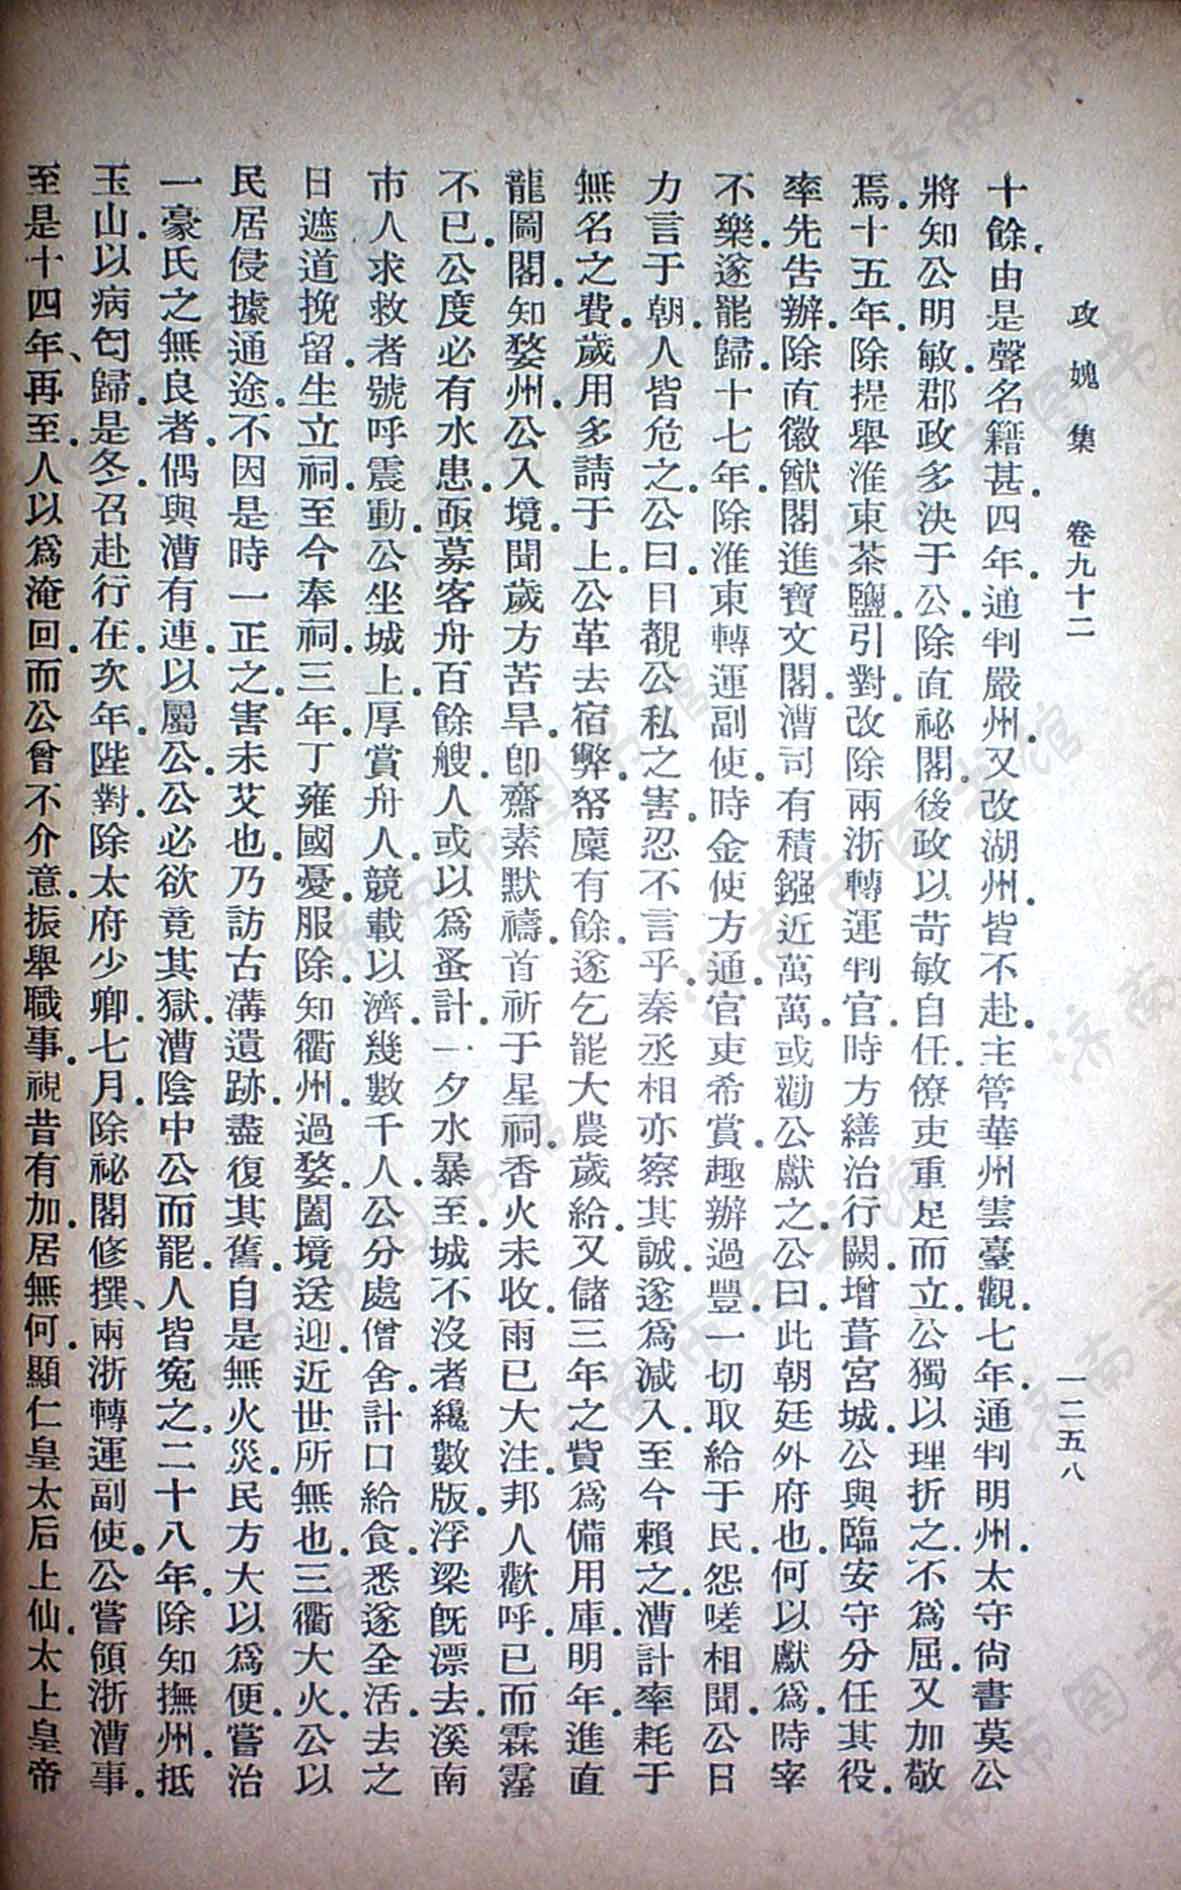 攻媿集 卷九十二 一二五八
十餘.由是聲名籍甚.四年.通判嚴州.又改湖州.皆不赴.主管華州雲臺觀.七年.通判明州.太守尙書莫公
將知公明敏.郡政多決于公.除直祕閣.後政以苛敏自任.僚吏重足而立.公獨以理折之.不爲屈.又加敬
焉.十五年.除提舉淮東茶鹽.引對.改除兩浙轉運判官.時方繕治行闕.增葺宮城.公與臨安守分任其役.
率先吿辦.除直徽猷閣.進寶文閣.漕司有積鏹近萬萬.或勸公獻之.公曰.此朝廷外府也.何以獻爲.時宰
不樂.遂罷歸.十七年.除淮東轉運副使.時金使方通.官吏希賞.趣辦過豐.一切取給于民.怨嗟相聞.公日
力言于朝.人皆危之.公曰.目覩公私之害.忍不言乎.秦丞相亦察其誠.遂爲減入.至今賴之.漕計率耗于
無名之費.歲用多請于上.公革去宿弊.帑廩有餘.遂乞罷大農歲給.又儲三年之貲爲備用庫.明年.進直
龍圖閣.知婺州.公入境.聞歲方苦旱.卽齋素默禱.首祈于星祠.香火未收.雨已大注.邦人歡呼.已而霖霪
不已.公度必有水患.亟募客舟百餘艘.人或以爲蚤計.一夕水暴至.城不沒者纔數版.浮梁旣漂去.溪南
市人求救者號呼震動.公坐城上.厚賞舟人.競載以濟.幾數千人.公分處僧舍.計口給食.悉遂全活.去之
日遮道挽留.生立祠.至今奉祠.三年.丁雍國憂.服除.知衢州.過婺.闔境送迎.近世所無也.三衢大火.公以
民居侵據通途.不因是時一正之.害未艾也.乃訪古溝遺跡.盡復其舊.自是無火災.民方大以爲便.嘗治
一豪氏之無良者.偶與漕有連.以屬公.公必欲竟其獄.漕陰中公而罷.人皆冤之.二十八年.除知撫州.抵
玉山.以病匄歸.是冬.召赴行在.次年.陛對.除太府少卿.七月.除祕閣修撰、兩浙轉運副使.公嘗領浙漕事.
至是十四年、再至.人以爲淹回.而公曾不介意.振舉職事.視昔有加.居無何.顯仁皇太后上仙.太上皇帝